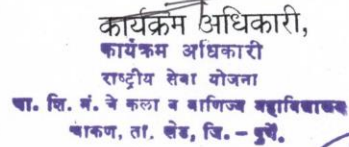 कार्यक्रम अधिकारी,
कार्यक्रम अधिकारी
राष्ट्रीय सेवा योजना
चा. शि. मं. चे कला व वाणिज्य महाविद्यालय
चाकण, ता. खेड, जि. - पुणे.